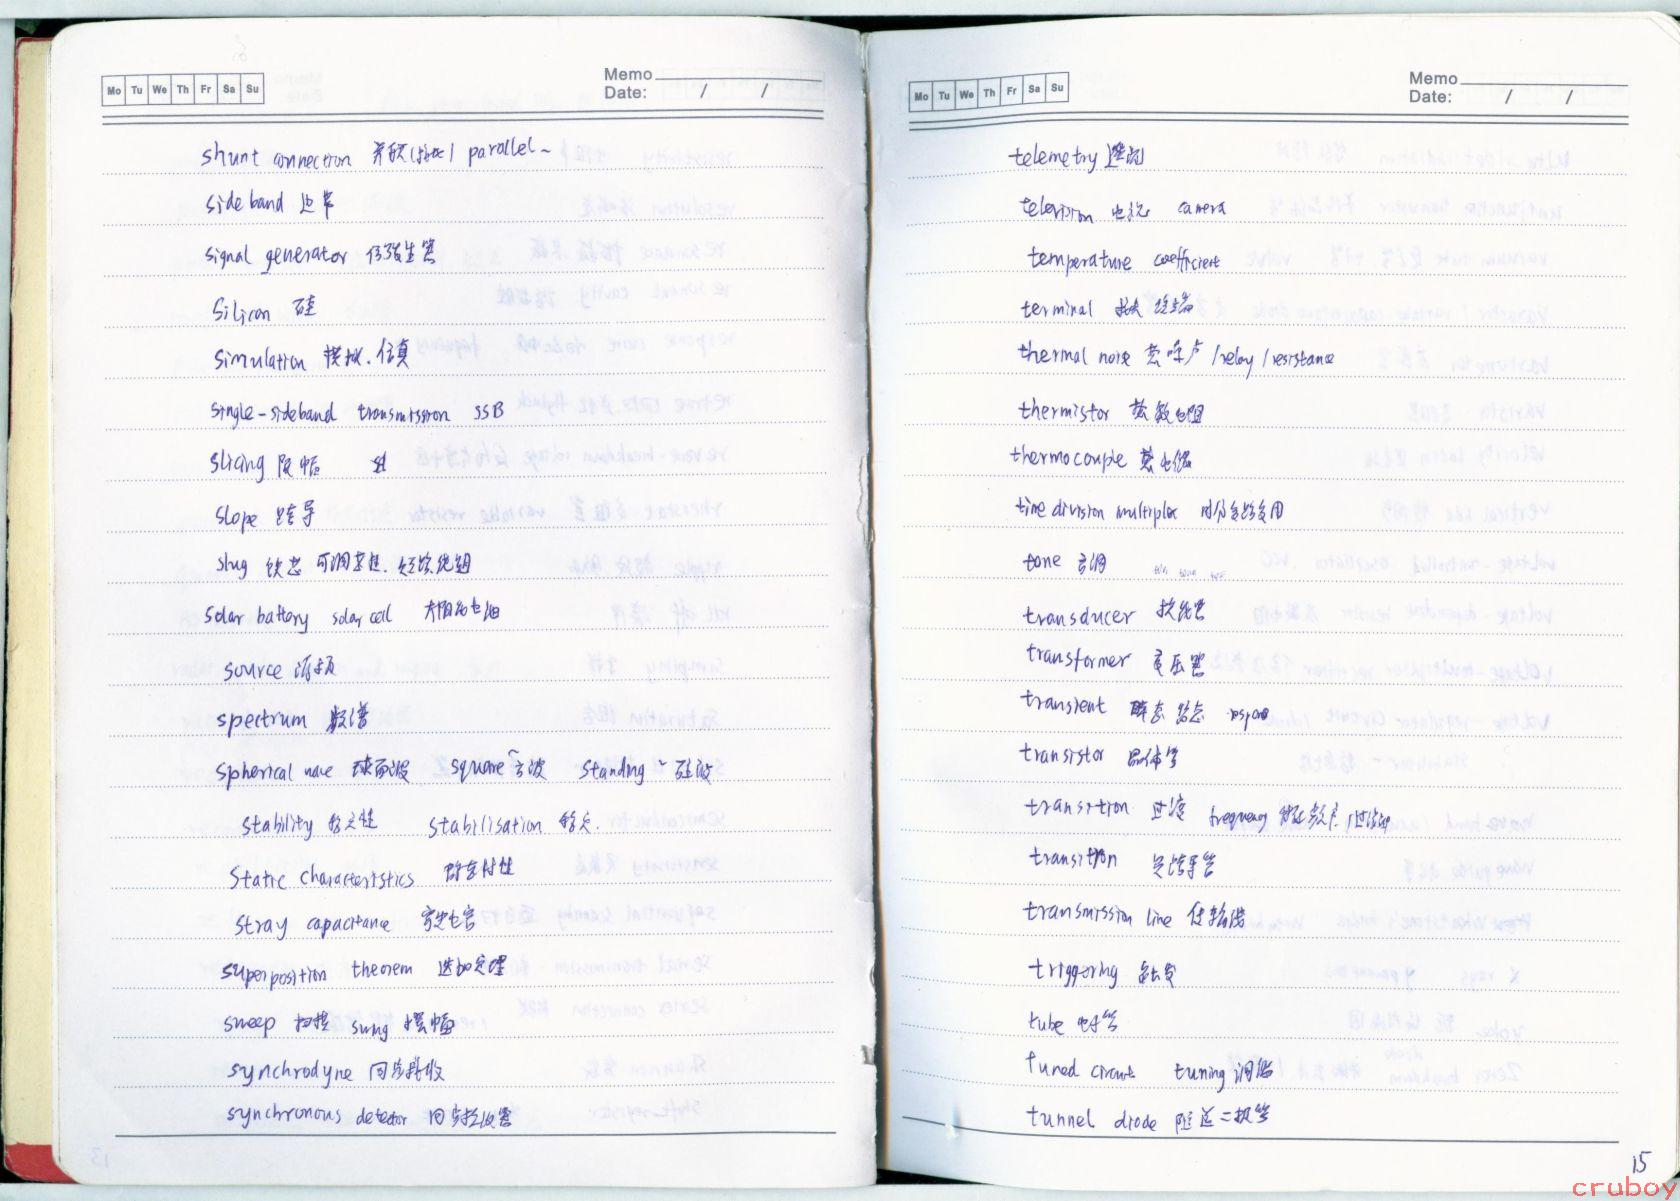 Mo Tu We Th Fr Sa Su
Memo
Date: / /
shunt connection 并联 parallel ~
sideband 边带
signal generator 信号发生器
Silicon 硅
Simulation 模拟.仿真
single-sideband transmission SSB
slicing 限幅
slope 跨导
slug 铁芯 可调 绕组
Solar battery solar cell 太阳能电池
source 源极
spectrum 频谱
Spherical wave 球面波 square ~ 方波 Standing ~ 驻波
Stability 稳定性 stabilisation 稳定.
Static characteristics 静态特性
Stray capacitance 寄生电容
superposition theorem 迭加定理
sweep 扫描 swing 摆幅
synchrodyne 同步接收
synchronous detector 同步检波器
Mo Tu We Th Fr Sa Su
Memo
Date: / /
telemetry 遥测
television 电视 camera
temperature coefficient
terminal 接头 终端
thermal noise 热噪声 /relay /resistance
thermistor 热敏电阻
thermocouple 热电偶
time division multiplex 时分多路复用
tone 音调
transducer 换能器
transformer 变压器
transient 瞬态 response
transistor 晶体管
transition 过渡 frequency
transitron 负跨导管
transmission line 传输线
triggering 触发
tube 电子管
tuned circuit tuning 调谐
tunnel diode 隧道二极管
15
cruboy